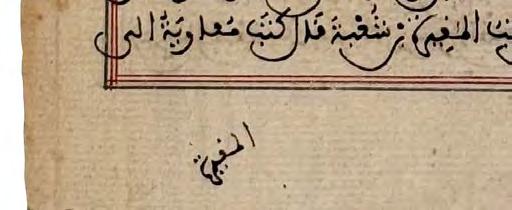 المغِيرة بْن شُعْبة قال كتبَ مُعاويَةُ الى
المغيرة